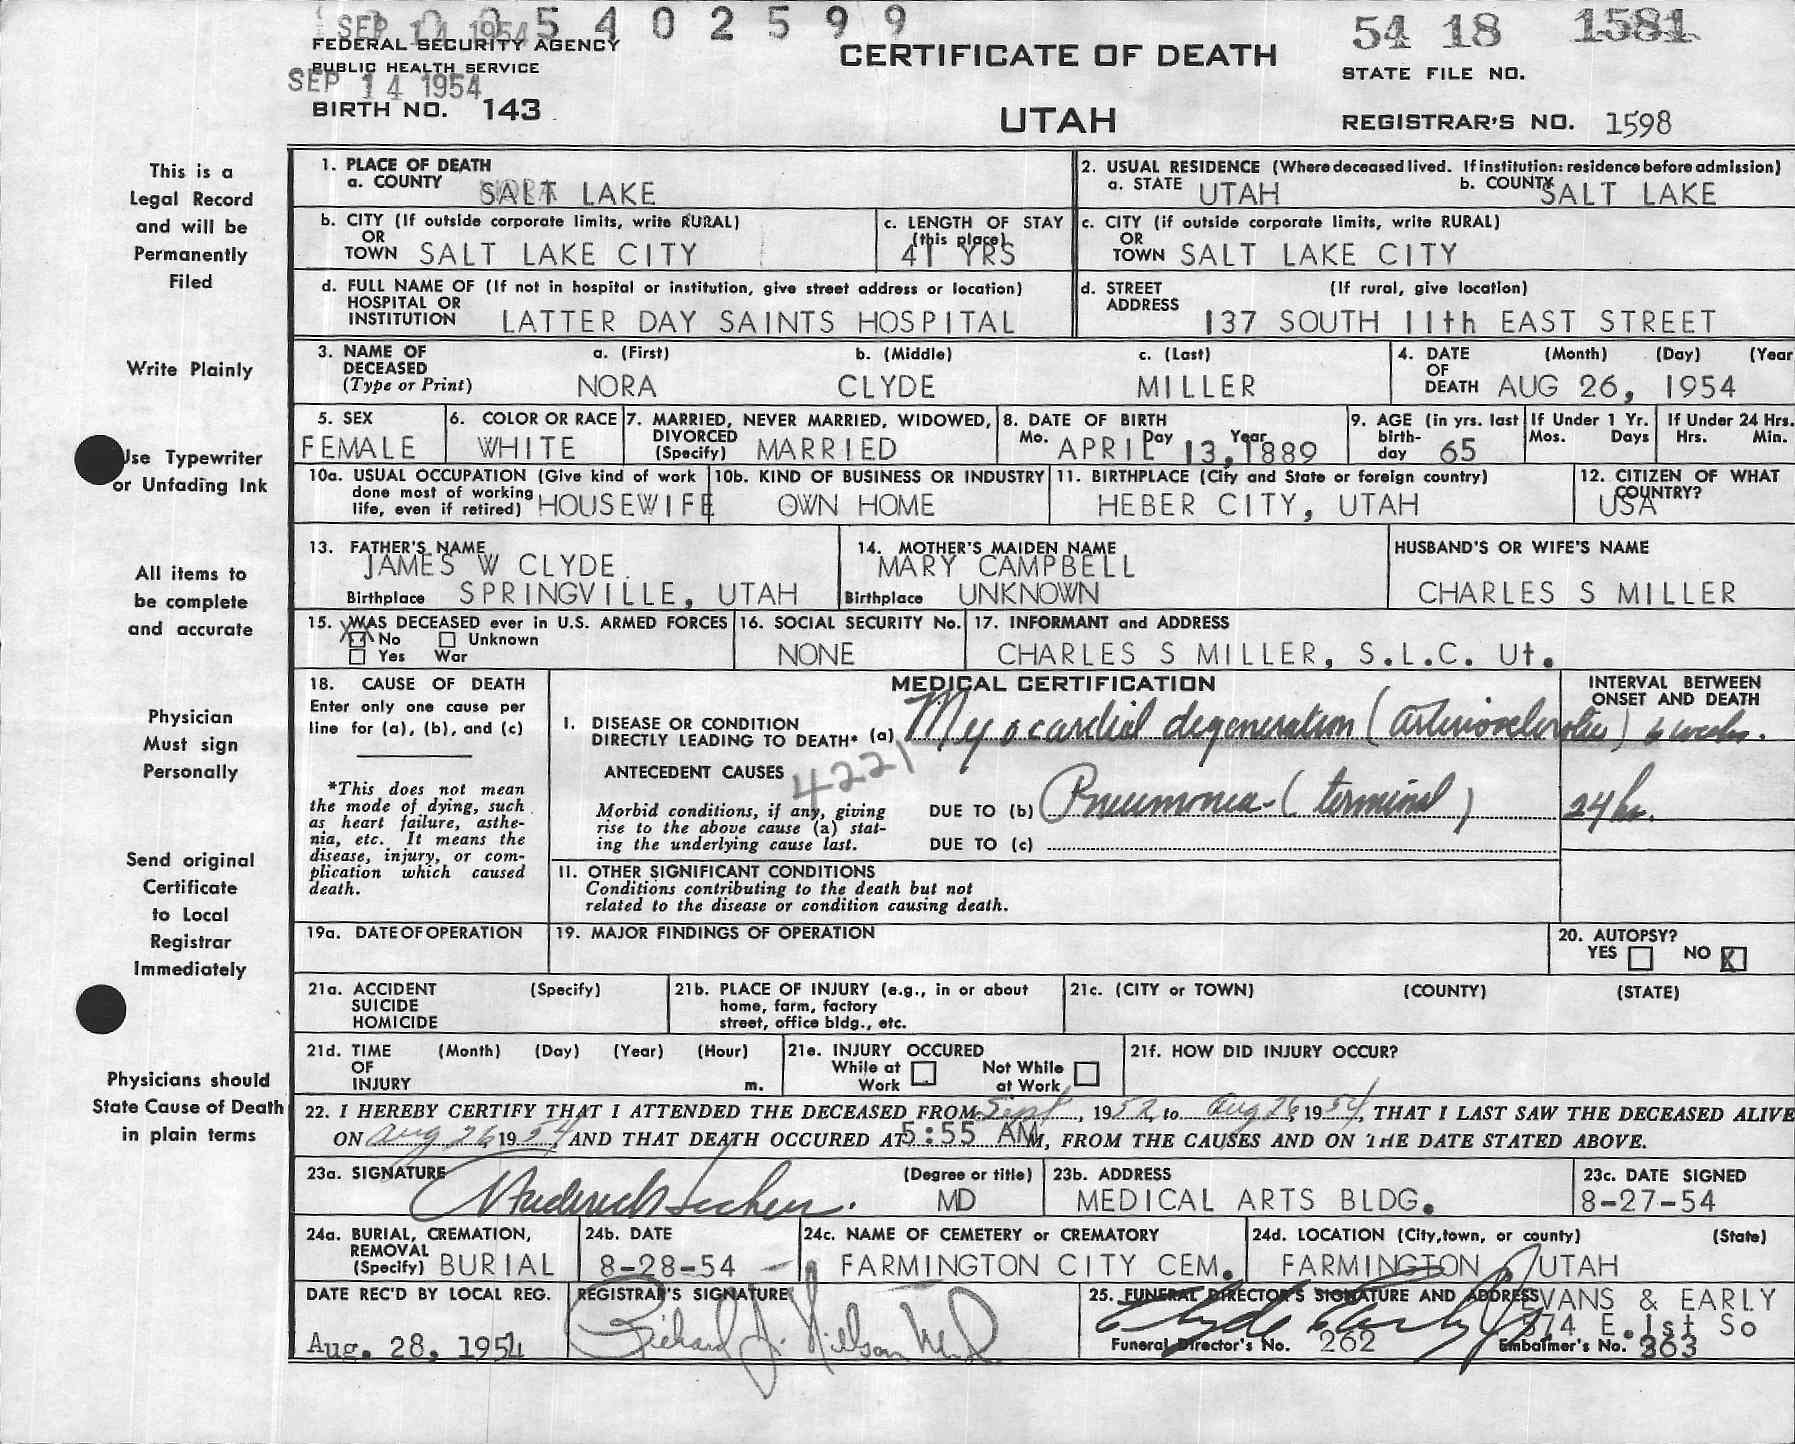 5 4 0 2 5 9 9
SEP 14 1954
FEDERAL SECURITY AGENCY
PUBLIC HEALTH SERVICE
SEP 14 1954
BIRTH NO. 143
CERTIFICATE OF DEATH
UTAH
54 18 1581
STATE FILE NO.
REGISTRAR'S NO. 1598
This is a
Legal Record
and will be
Permanently
Filed
Write Plainly
Use Typewriter
or Unfading Ink
All items to
be complete
and accurate
Physician
Must sign
Personally
Send original
Certificate
to Local
Registrar
Immediately
Physicians should
State Cause of Death
in plain terms
1. PLACE OF DEATH
a. COUNTY SALT LAKE
2. USUAL RESIDENCE (Where deceased lived. If institution: residence before admission)
a. STATE UTAH b. COUNTY SALT LAKE
b. CITY (If outside corporate limits, write RURAL)
OR
TOWN SALT LAKE CITY
c. LENGTH OF STAY
(this place)
41 YRS
c. CITY (if outside corporate limits, write RURAL)
OR
TOWN SALT LAKE CITY
d. FULL NAME OF (If not in hospital or institution, give street address or location)
HOSPITAL OR
INSTITUTION LATTER DAY SAINTS HOSPITAL
d. STREET (If rural, give location)
ADDRESS
137 SOUTH 11th EAST STREET
3. NAME OF a. (First) b. (Middle) c. (Last)
DECEASED
(Type or Print) NORA CLYDE MILLER
4. DATE (Month) (Day) (Year
OF
DEATH AUG 26, 1954
5. SEX
FEMALE
6. COLOR OR RACE
WHITE
7. MARRIED, NEVER MARRIED, WIDOWED,
DIVORCED
(Specify) MARRIED
8. DATE OF BIRTH
Mo. Day Year
APRIL 13, 1889
9. AGE (in yrs. last
birth-
day 65
If Under 1 Yr.
Mos. Days
If Under 24 Hrs.
Hrs. Min.
10a. USUAL OCCUPATION (Give kind of work
done most of working
life, even if retired) HOUSEWIFE
10b. KIND OF BUSINESS OR INDUSTRY
OWN HOME
11. BIRTHPLACE (City and State or foreign country)
HEBER CITY, UTAH
12. CITIZEN OF WHAT
COUNTRY?
USA
13. FATHER'S NAME
JAMES W CLYDE
Birthplace SPRINGVILLE, UTAH
14. MOTHER'S MAIDEN NAME
MARY CAMPBELL
Birthplace UNKNOWN
HUSBAND'S OR WIFE'S NAME
CHARLES S MILLER
15. WAS DECEASED ever in U.S. ARMED FORCES
X No Unknown
Yes War
16. SOCIAL SECURITY No.
NONE
17. INFORMANT and ADDRESS
CHARLES S MILLER, S.L.C. Ut.
18. CAUSE OF DEATH
Enter only one cause per
line for (a), (b), and (c)
*This does not mean
the mode of dying, such
as heart failure, asthe-
nia, etc. It means the
disease, injury, or com-
plication which caused
death.
MEDICAL CERTIFICATION
INTERVAL BETWEEN
ONSET AND DEATH
I. DISEASE OR CONDITION
DIRECTLY LEADING TO DEATH* (a) Myocardial degeneration (arteriosclerotic) 6 weeks.
ANTECEDENT CAUSES 4221
Morbid conditions, if any, giving
rise to the above cause (a) stat-
ing the underlying cause last.
DUE TO (b) Pneumonia - (terminal) 24 hr.
DUE TO (c)
II. OTHER SIGNIFICANT CONDITIONS
Conditions contributing to the death but not
related to the disease or condition causing death.
19a. DATE OF OPERATION
19. MAJOR FINDINGS OF OPERATION
20. AUTOPSY?
YES NO X
21a. ACCIDENT (Specify)
SUICIDE
HOMICIDE
21b. PLACE OF INJURY (e.g., in or about
home, farm, factory
street, office bldg., etc.
21c. (CITY or TOWN) (COUNTY) (STATE)
21d. TIME (Month) (Day) (Year) (Hour)
OF
INJURY m.
21e. INJURY OCCURED
While at Work Not While at Work
21f. HOW DID INJURY OCCUR?
22. I HEREBY CERTIFY THAT I ATTENDED THE DECEASED FROM Sept, 1952, to Aug 26, 1954, THAT I LAST SAW THE DECEASED ALIVE
ON Aug 26 1954, AND THAT DEATH OCCURED AT 5:55 AM M, FROM THE CAUSES AND ON THE DATE STATED ABOVE.
23a. SIGNATURE (Degree or title)
MD
23b. ADDRESS
MEDICAL ARTS BLDG.
23c. DATE SIGNED
8-27-54
24a. BURIAL, CREMATION,
REMOVAL
(Specify) BURIAL
24b. DATE
8-28-54
24c. NAME OF CEMETERY or CREMATORY
FARMINGTON CITY CEM.
24d. LOCATION (City, town, or county) (State)
FARMINGTON UTAH
DATE REC'D BY LOCAL REG.
Aug. 28, 1954
REGISTRAR'S SIGNATURE
Richard J. Nielson M.D.
25. FUNERAL DIRECTOR'S SIGNATURE AND ADDRESS EVANS & EARLY
574 E. 1st So
Funeral Director's No. 262 Embalmer's No. 363